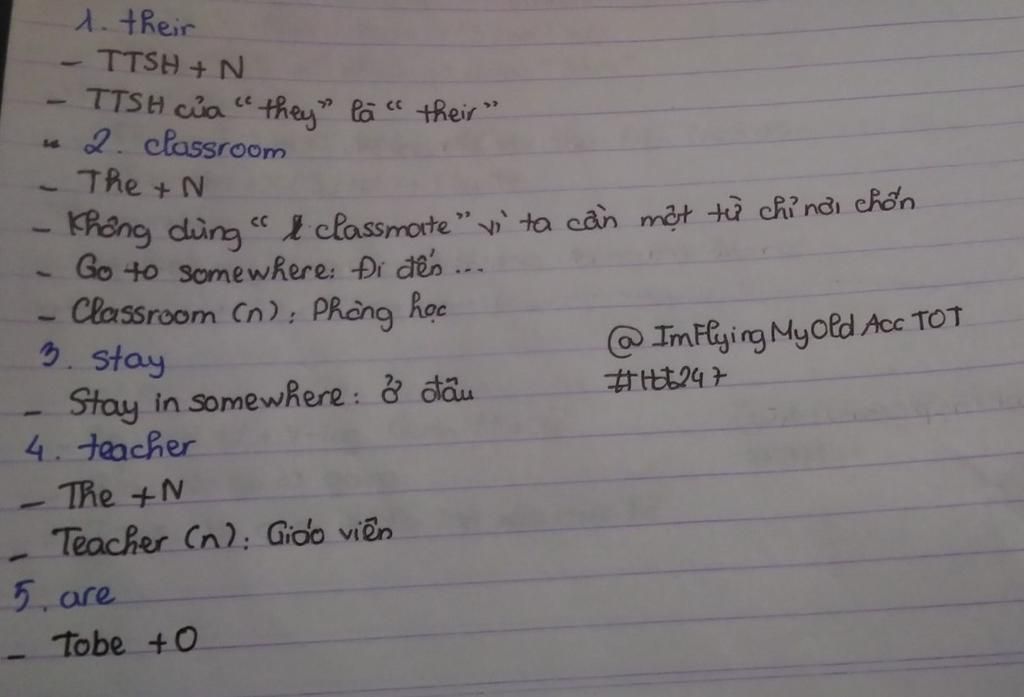 1. their
- TTSH + N
- TTSH của "they" là "their"
- 2. classroom
- The + N
- Không dùng " classmate" vì ta cần một từ chỉ nơi chốn
- Go to somewhere: Đi đến ...
- Classroom (n): Phòng học
3. stay
- Stay in somewhere: ở đâu
@ImFlyingMyOldAccTOT
#Hot247
4. teacher
- The + N
- Teacher (n): Giáo viên
5. are
- Tobe + O